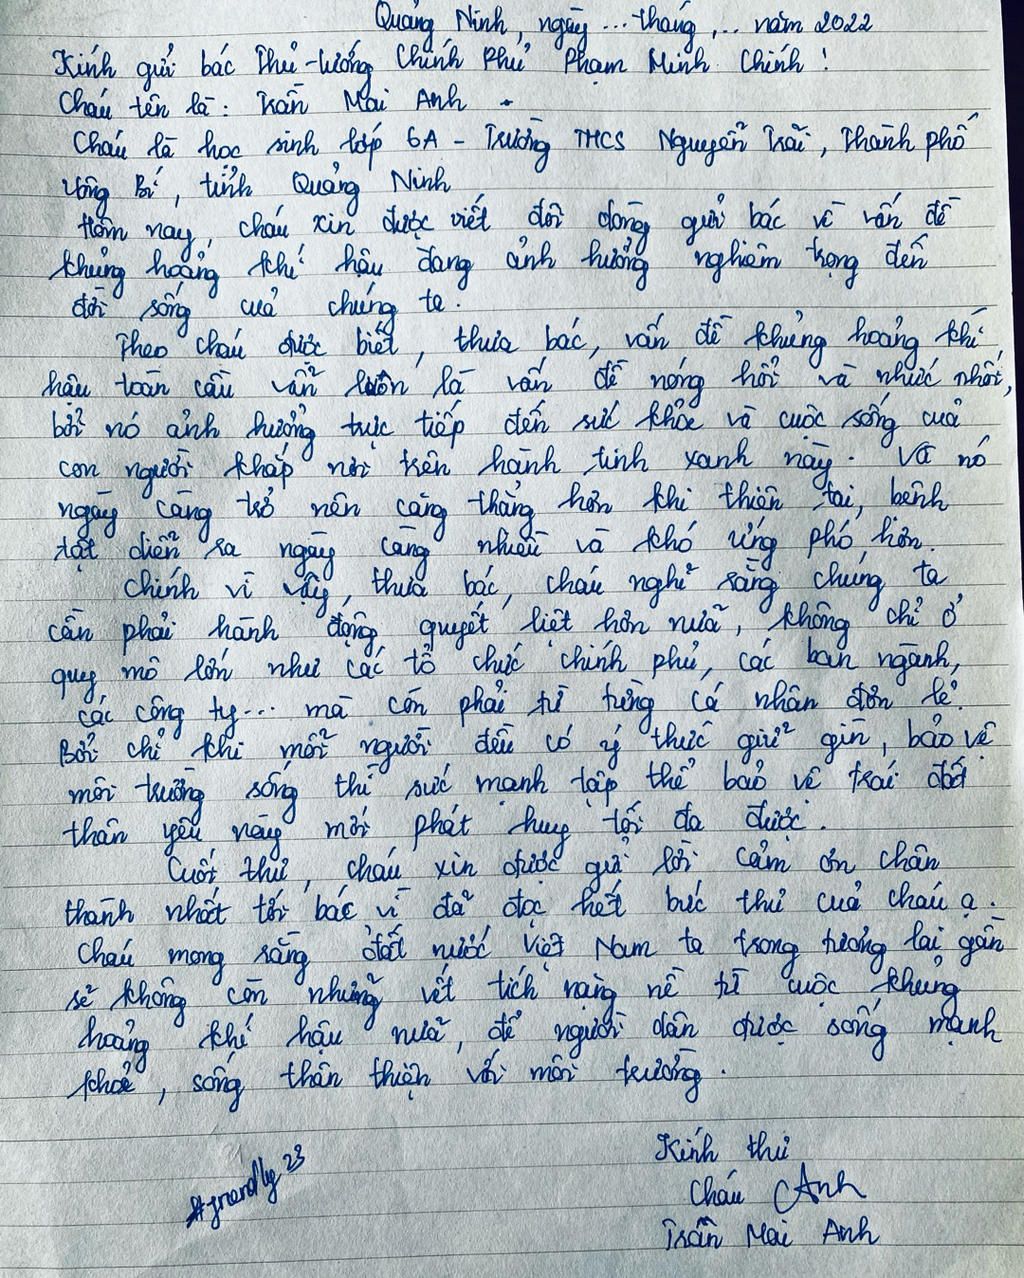 Quảng Ninh, ngày ... tháng ... năm 2022
Kính gửi bác Thủ-tướng Chính Phủ Phạm Minh Chính !
Cháu tên là : Trần Mai Anh .
Cháu là học sinh lớp 6A - Trường THCS Nguyễn Trãi, Thành phố
Uông Bí, tỉnh Quảng Ninh
Hôm nay, cháu xin được viết đôi dòng gửi bác về vấn đề
khủng hoảng khí hậu đang ảnh hưởng nghiêm trọng đến
đời sống của chúng ta.
Theo cháu được biết, thưa bác, vấn đề khủng hoảng khí
hậu toàn cầu vẫn luôn là vấn đề nóng hổi và nhức nhối,
bởi nó ảnh hưởng trực tiếp đến sức khỏe và cuộc sống của
con người khắp nơi trên hành tinh xanh này. Và nó
ngày càng trở nên căng thẳng hơn khi thiên tai, bệnh
tật diễn ra ngày càng nhiều và khó ứng phó hơn.
Chính vì vậy, thưa bác, cháu nghĩ rằng chúng ta
cần phải hành động quyết liệt hơn nữa, không chỉ ở
quy mô lớn như các tổ chức chính phủ, các ban ngành,
các công ty... mà còn phải từ từng cá nhân đơn lẻ.
Bởi chỉ khi mỗi người đều có ý thức giữ gìn, bảo vệ
môi trường sống thì sức mạnh tập thể bảo vệ trái đất
thân yêu này mới phát huy tối đa được.
Cuối thư, cháu xin được gửi lời cảm ơn chân
thành nhất tới bác vì đã đọc hết bức thư của cháu ạ.
Cháu mong rằng đất nước Việt Nam ta trong tương lai gần
sẽ không còn những vết tích nặng nề từ cuộc khủng
hoảng khí hậu nữa, để người dân được sống mạnh
khoẻ, sống thân thiện với môi trường.
Kính thư
Cháu Anh
Trần Mai Anh